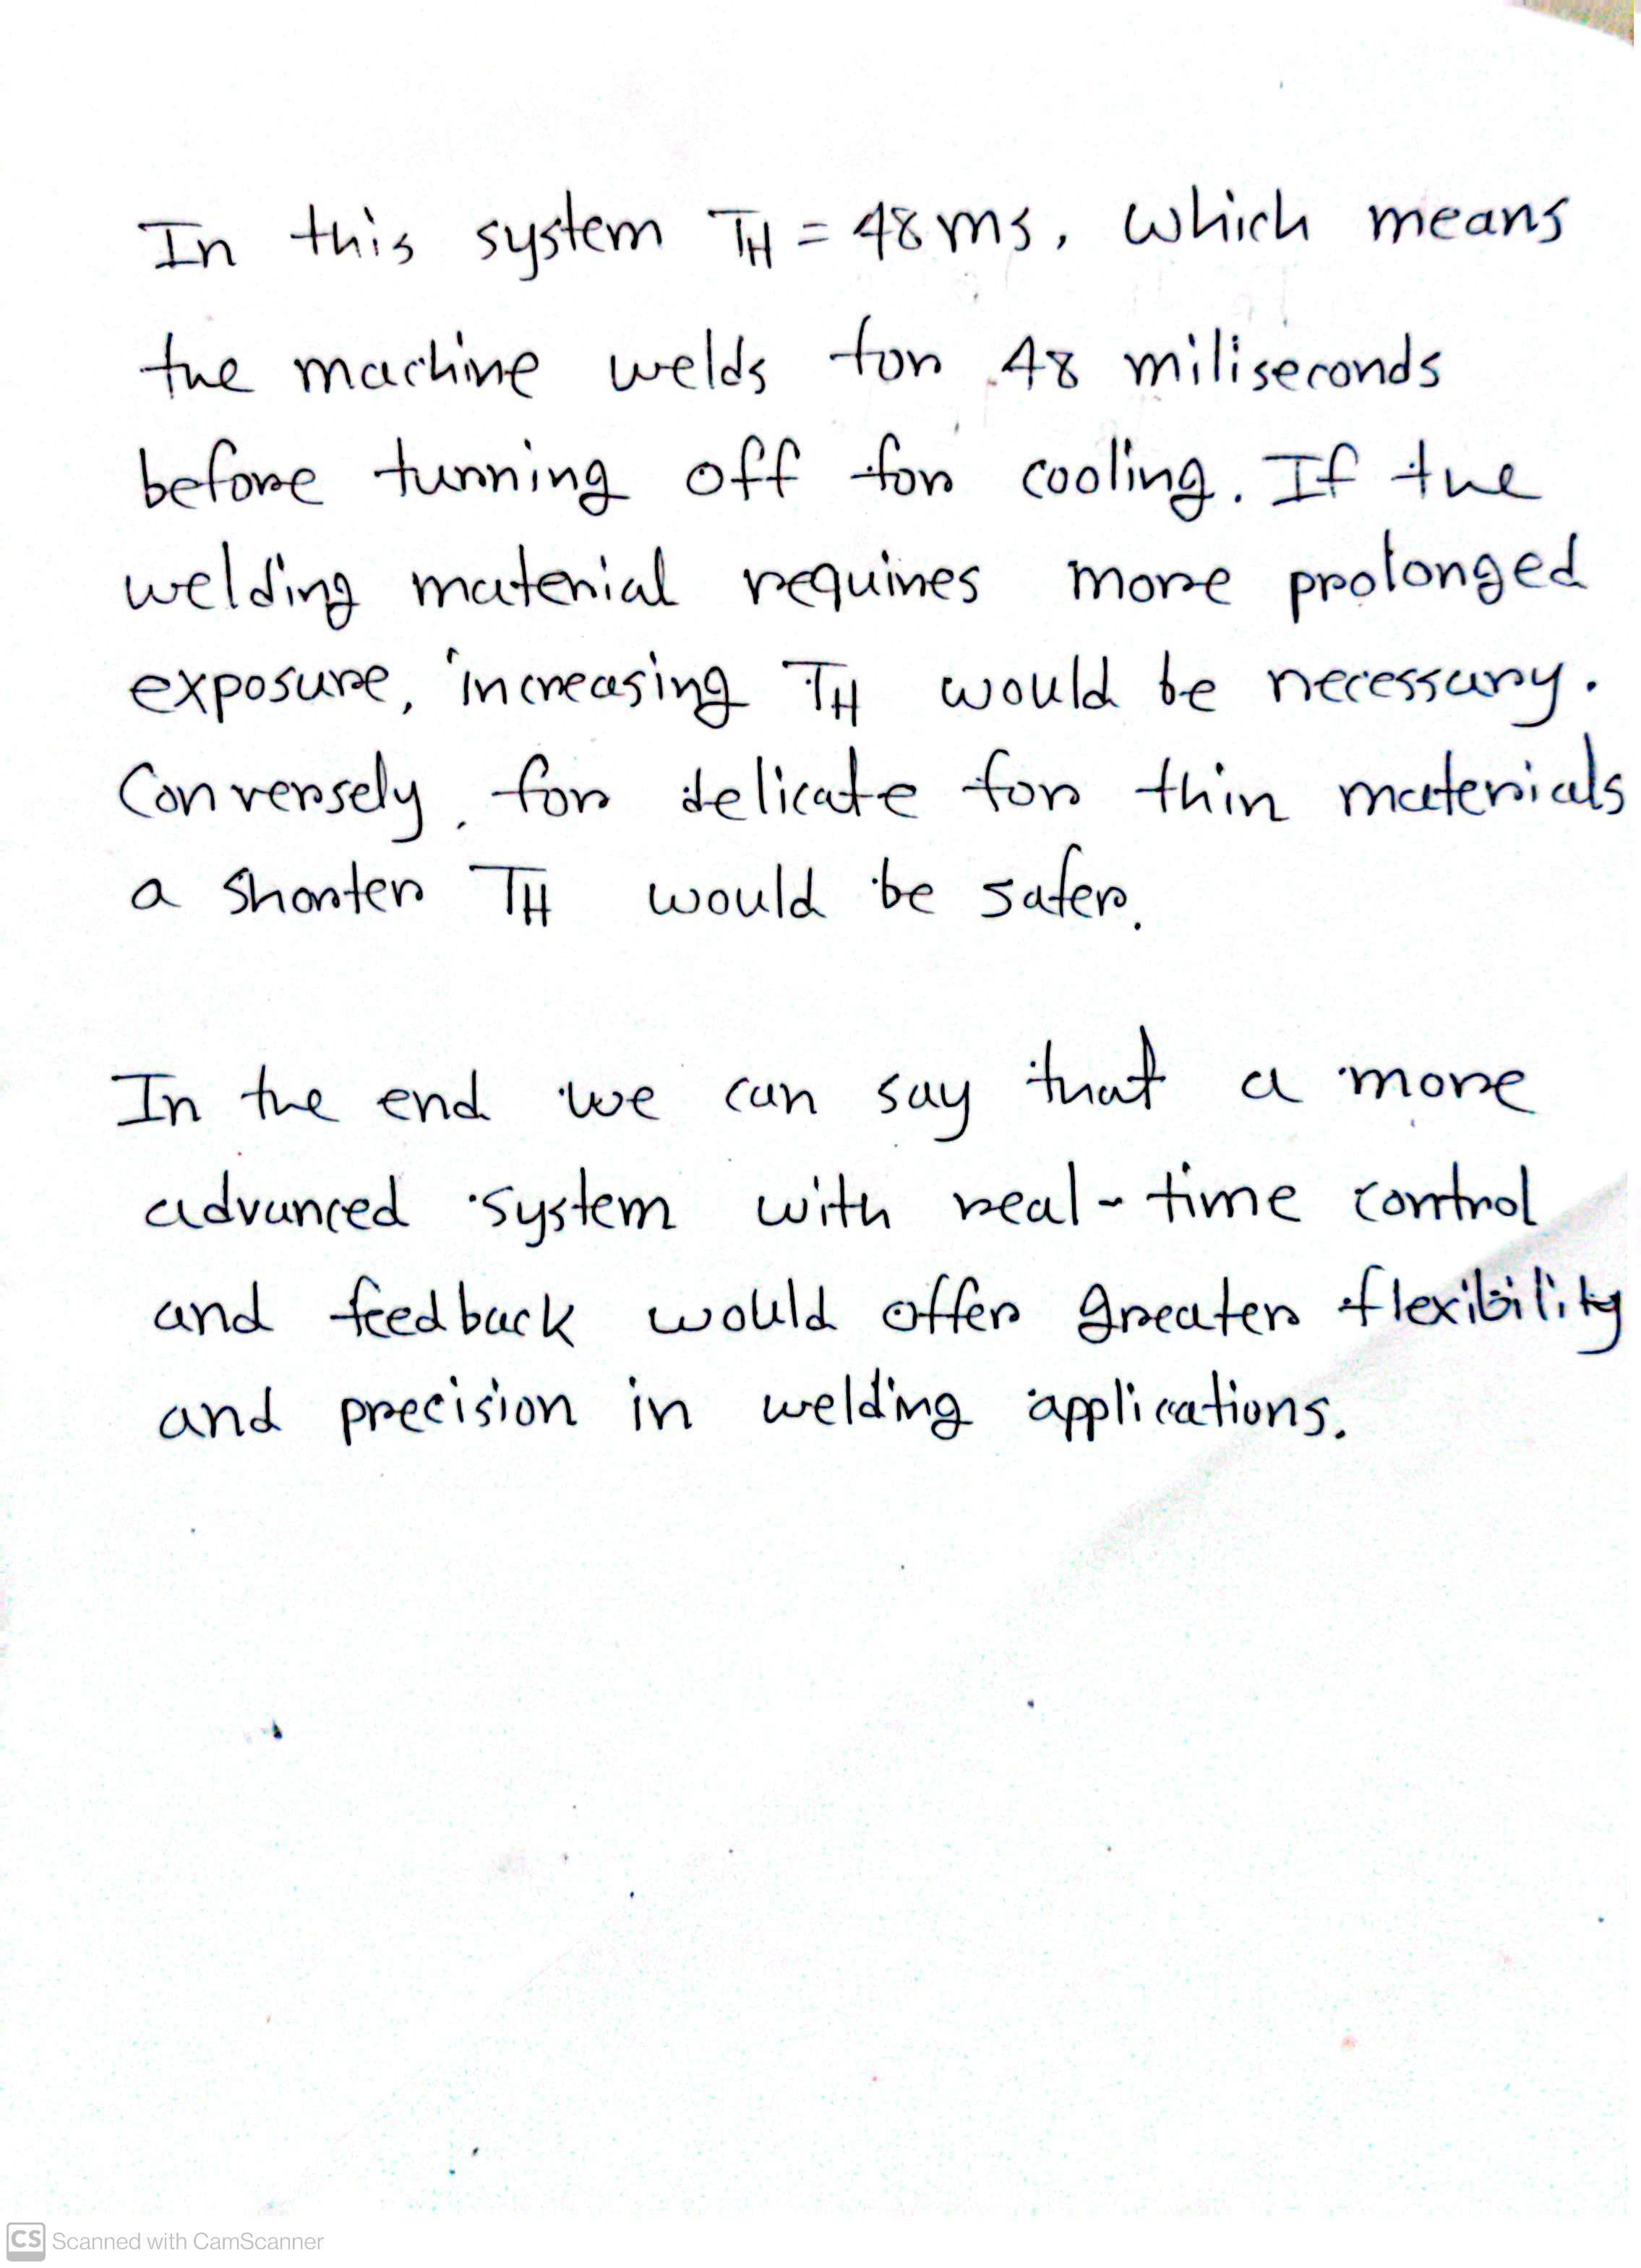 In this system TH = 48 ms, which means
the machine welds for 48 miliseconds
before turning off for cooling. If the
welding material requires more prolonged
exposure, increasing TH would be necessary.
Conversely, for delicate for thin materials
a shorter TH would be safer.
In the end we can say that a more
advanced system with real-time control
and feedback would offer greater flexibility
and precision in welding applications.
CS Scanned with CamScanner